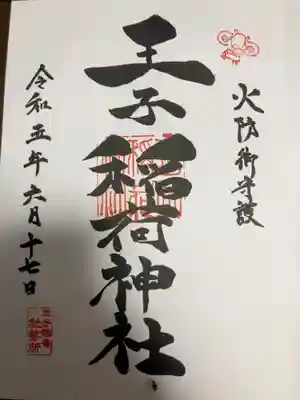 火防御守護
王子稲荷神社
令和五年六月十七日